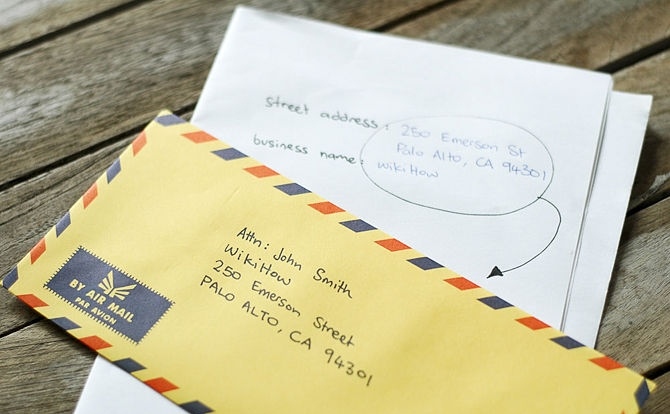 street address: 250 Emerson St
Palo Alto, CA 94301
business name: wikiHow
Attn: John Smith
WikiHow
250 Emerson Street
PALO ALTO, CA 94301
BY AIR MAIL
PAR AVION